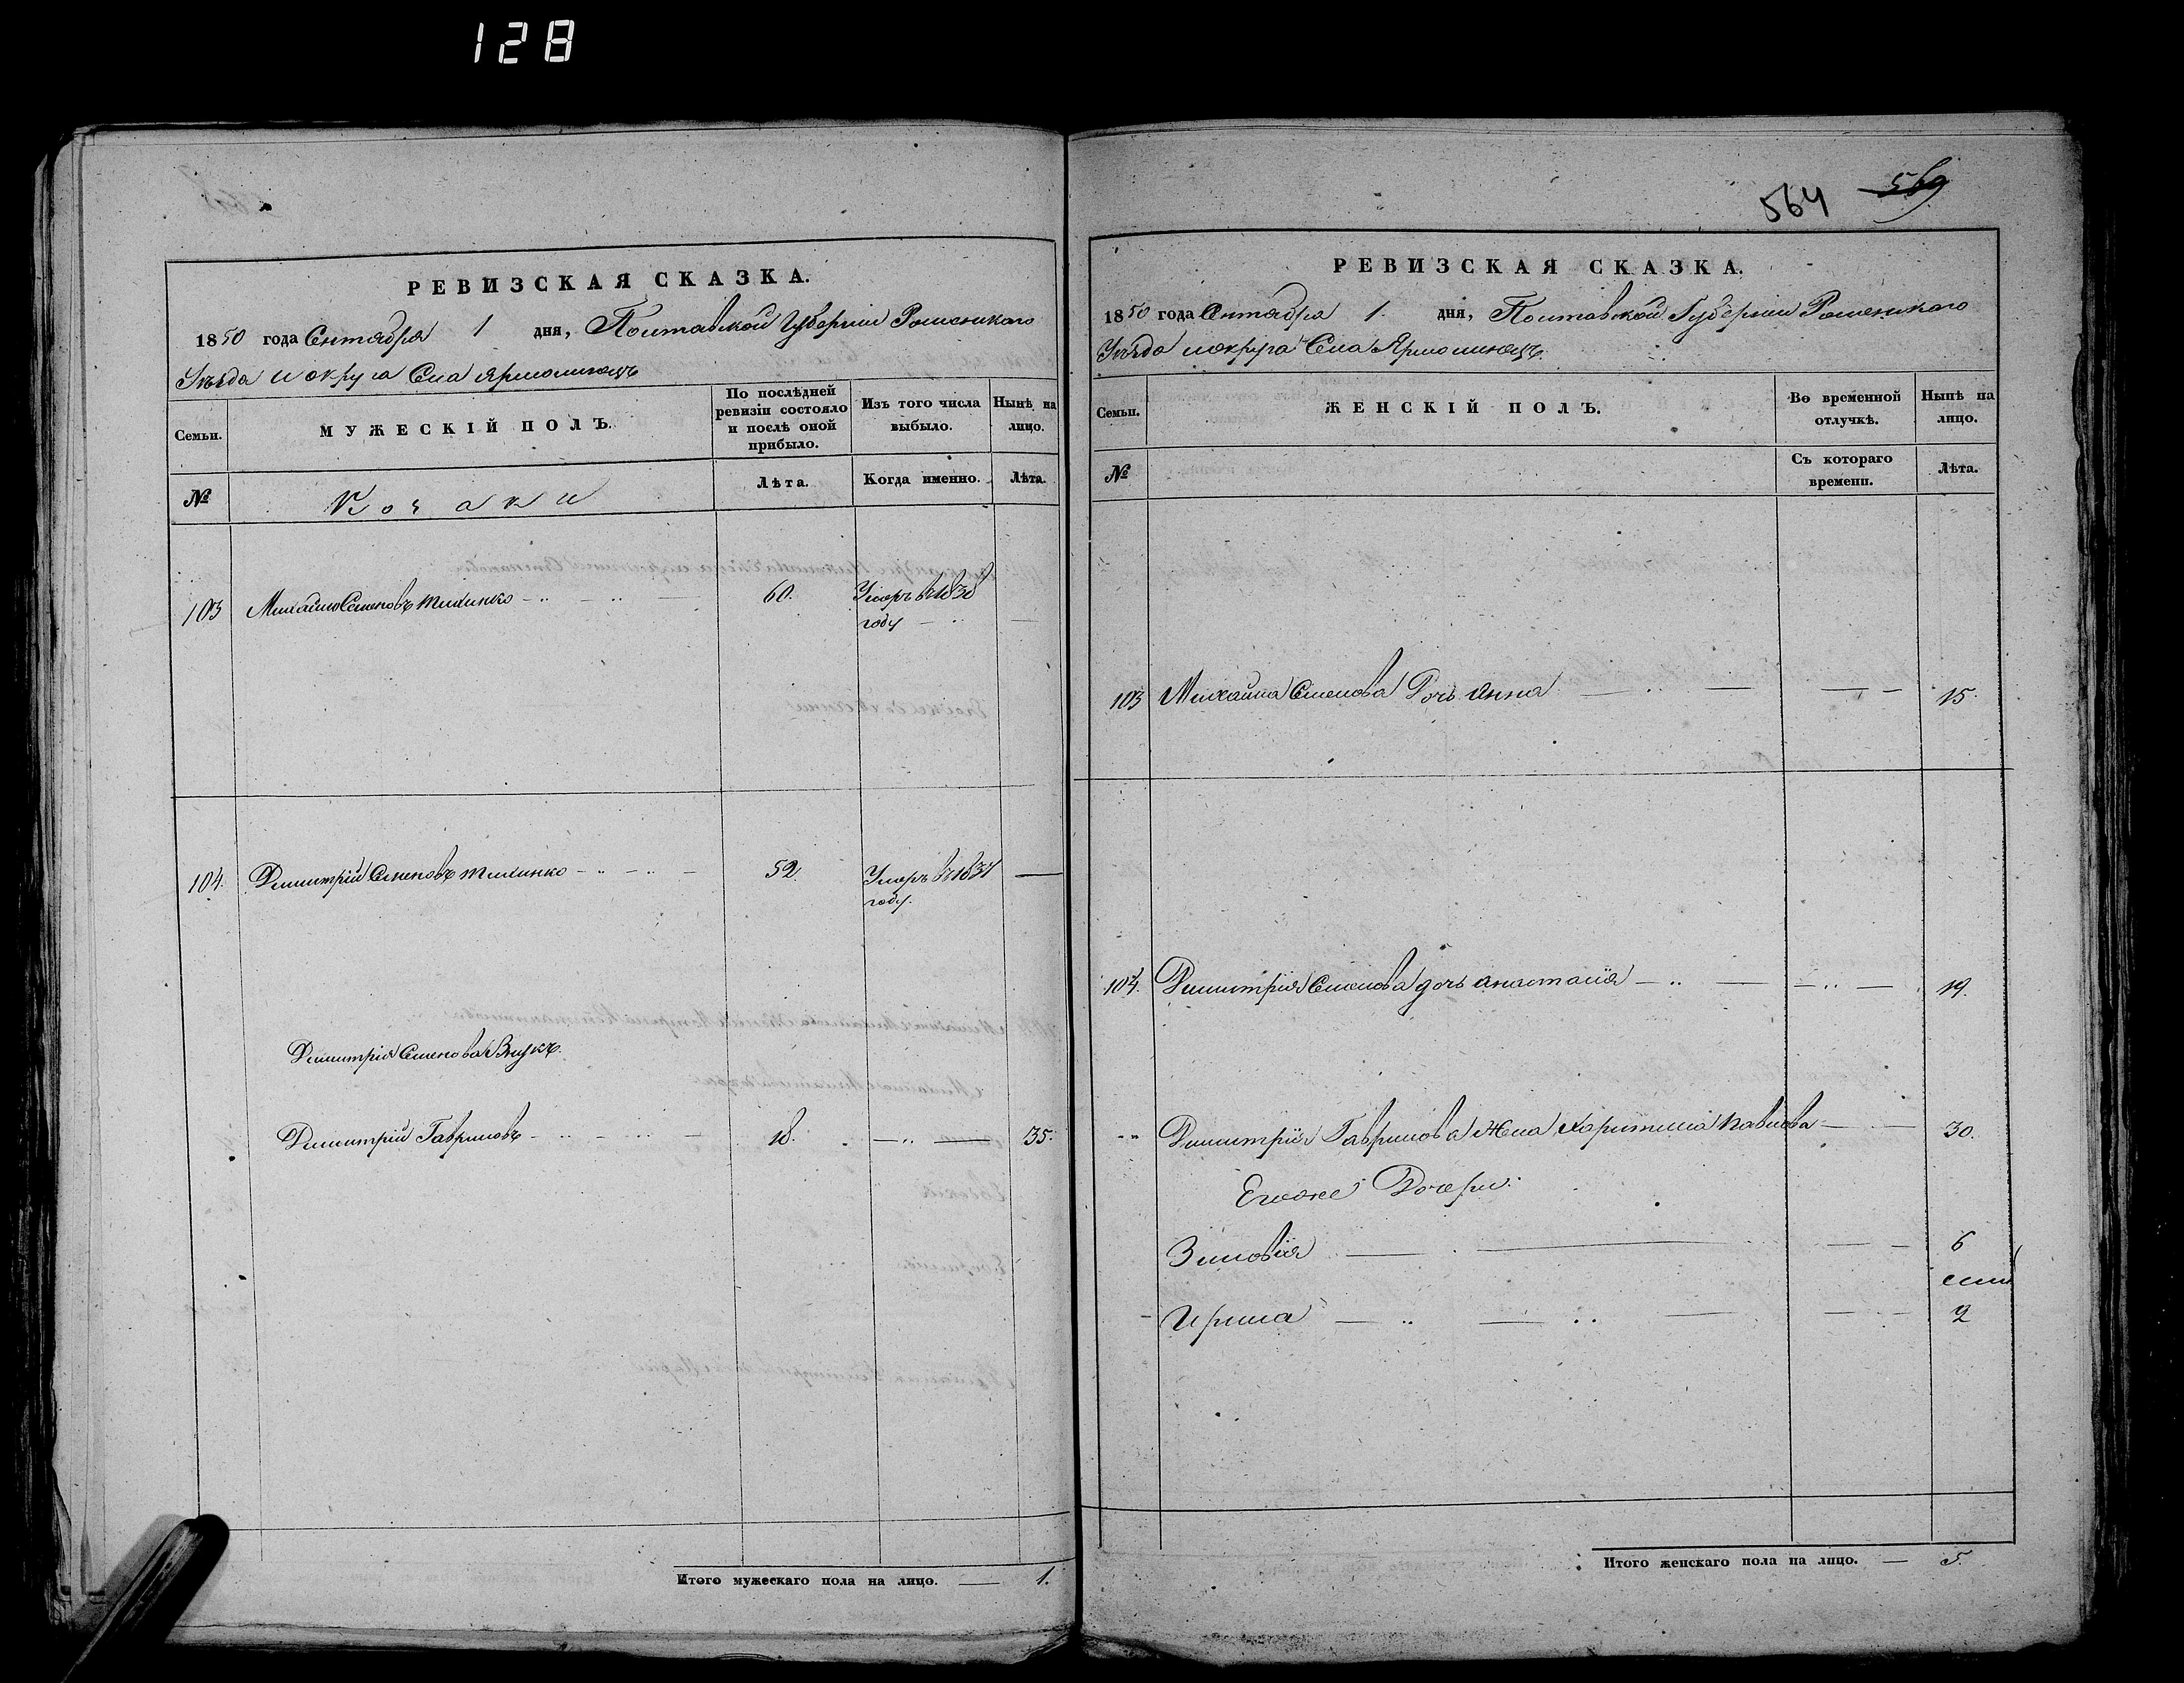 128
564 569
РЕВИЗСКАЯ СКАЗКА.
1850 года Сентября 1 дня, Полтавской Губернии Роменского
Уезда и округа Села Ярмолинец
Семьи.
МУЖЕСКІЙ ПОЛЪ.
По послѣдней ревизіи состояло и послѣ оной прибыло.
Изъ того числа выбыло.
Нынѣ на лицо.
№
Козаки
Лѣта.
Когда именно.
Лѣта.
103 Михайло Семеновъ 60. Умеръ в 1838
году
104. Димитрій Семеновъ 52. Умеръ в
году.
Димитрія Семенова Внукъ.
Димитрій Гавриловъ 18. 35.
Итого мужескаго пола на лицо. — 1.
РЕВИЗСКАЯ СКАЗКА.
1850 года Сентября 1. дня, Полтавской Губернии Роменского
Уезда и округа Села Ярмолинец
Семьи.
ЖЕНСКІЙ ПОЛЪ.
Во временной отлучкѣ.
Нынѣ на лицо.
№
Съ котораго времени.
Лѣта.
103 Михайла Семенова Дочь Анна 15.
104. Димитрія Семенова дочь Анастасія 19.
Димитрія Гаврилова Жена Харитина Павлова 30.
Его же Дочери:
Зиновія 6
Ирина 2
Итого женскаго пола на лицо. — 5.